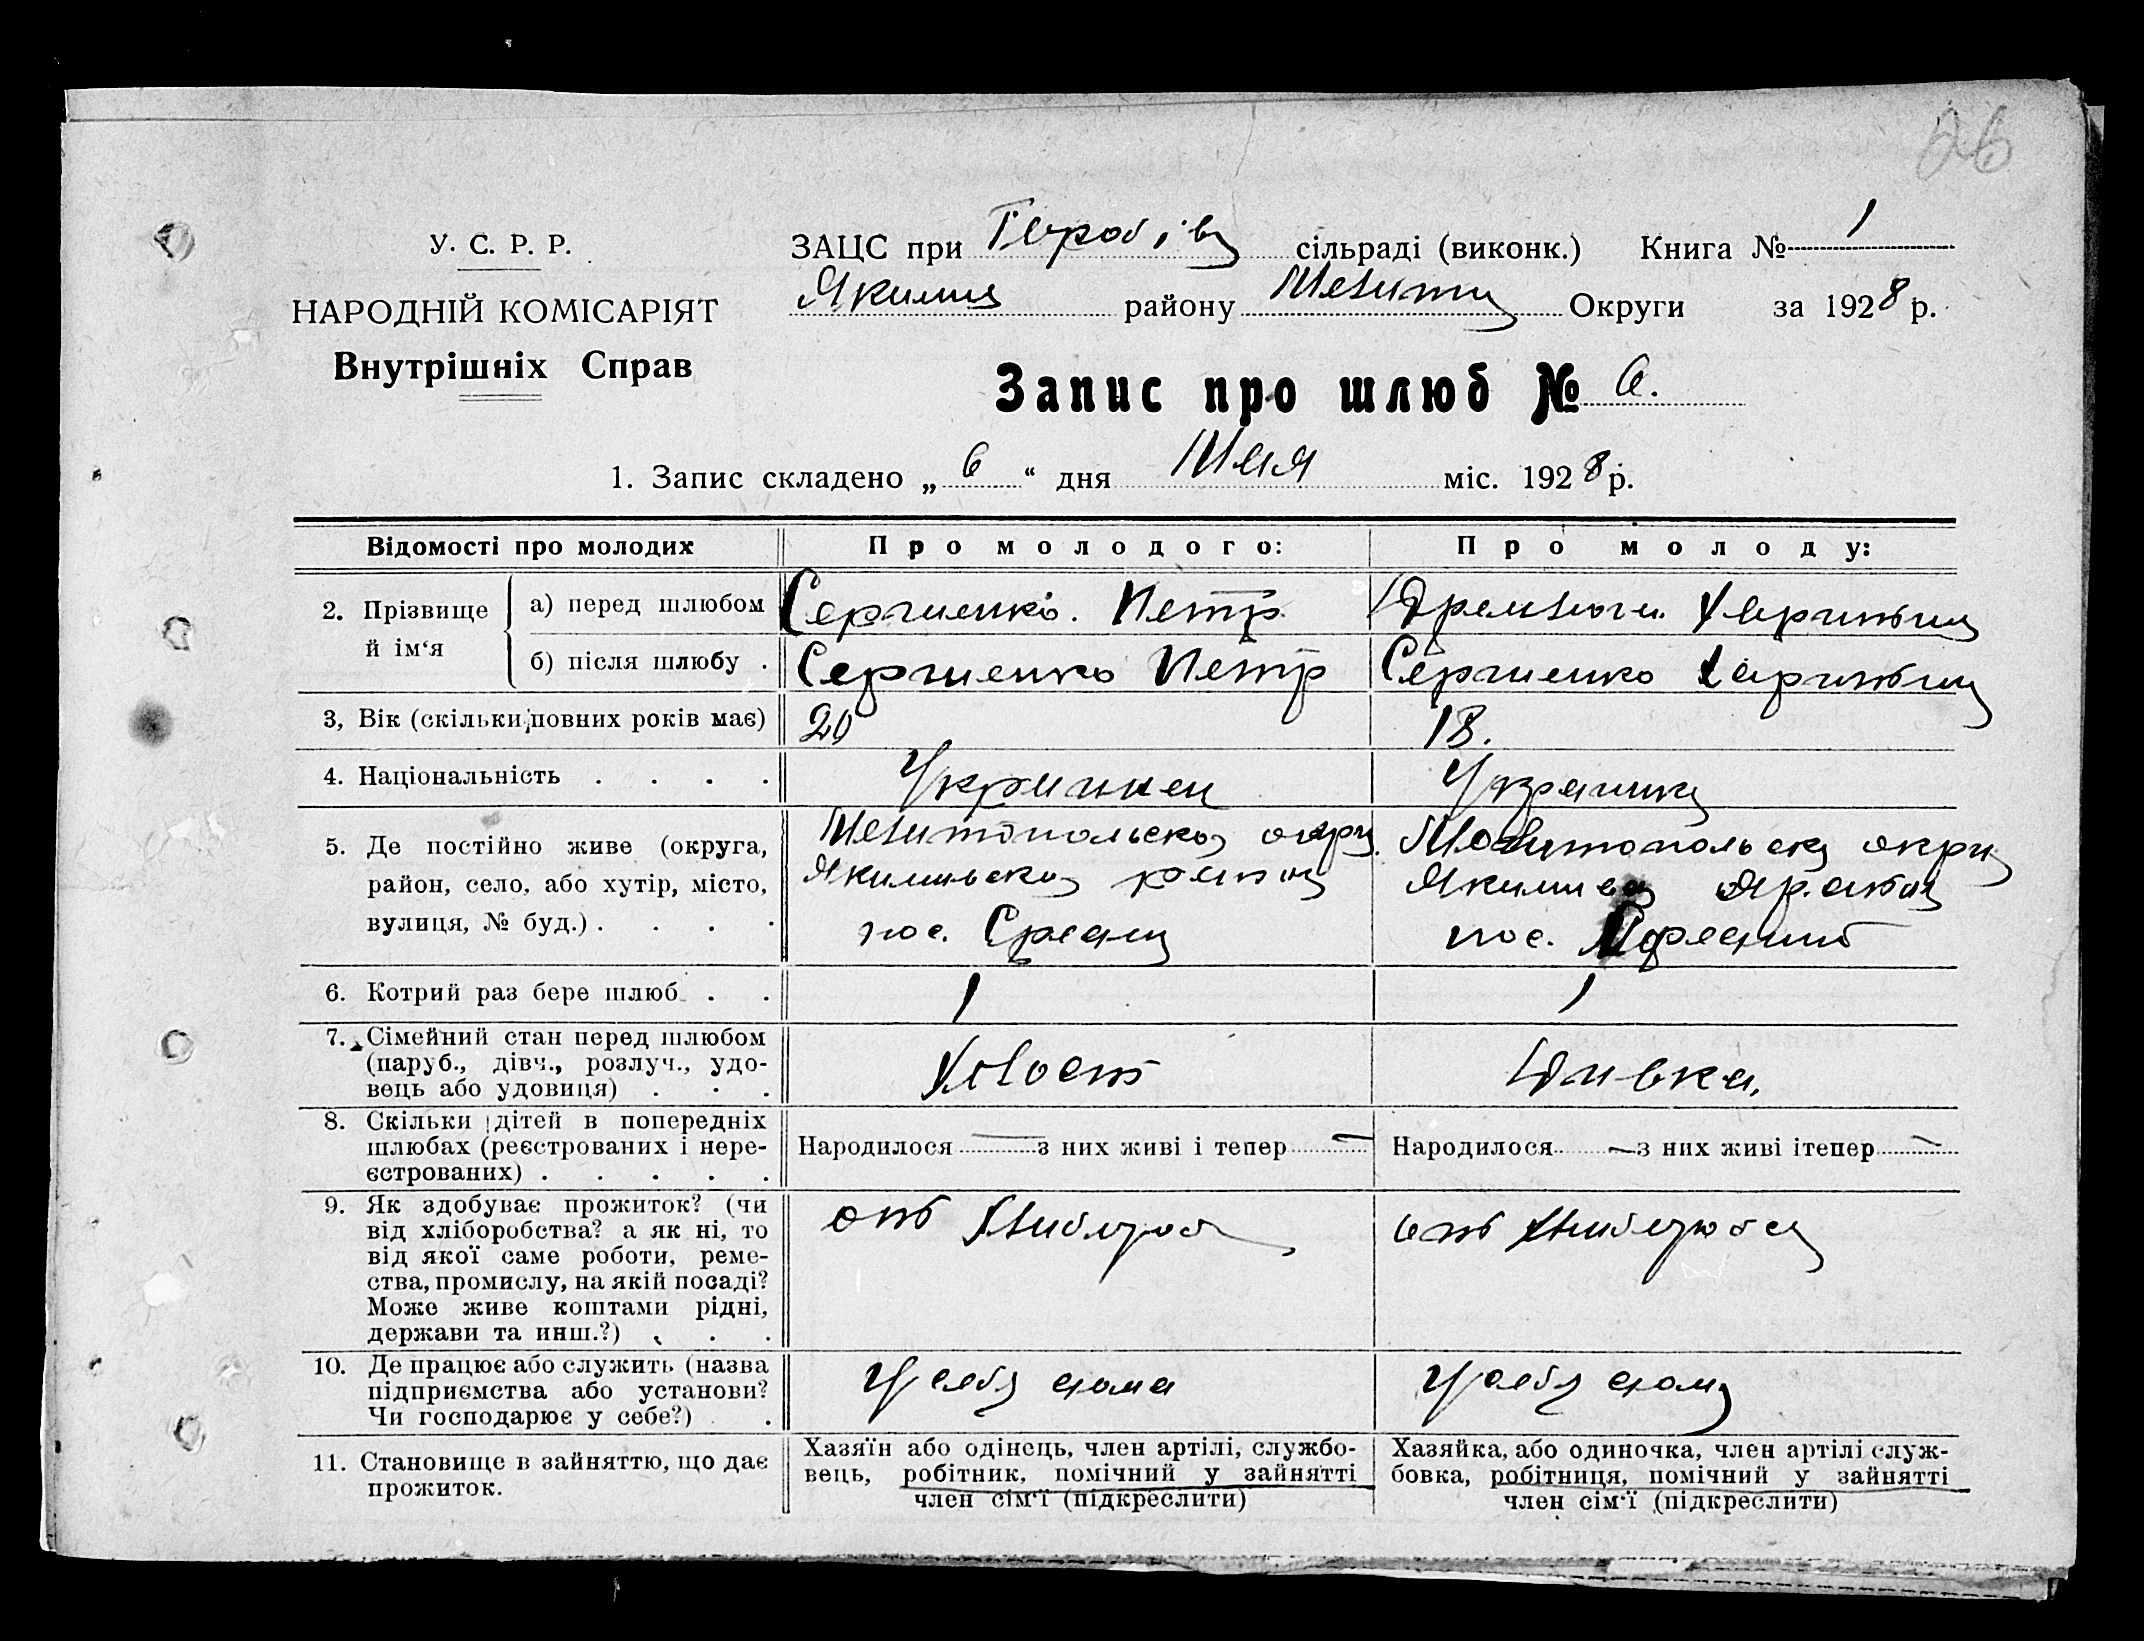 26
У. С. Р. Р.
НАРОДНІЙ КОМІСАРІЯТ
Внутрішніх Справ
ЗАЦС при сільраді (виконк.) Книга № 1
Якими району Мелит Округи за 1928 р.
Запис про шлюб № 6.
1. Запис складено „ 6 “ дня Мая міс. 1928 р.
Відомості про молодих Про молодого: Про молоду:
2. Прізвище й ім‘я
а) перед шлюбом Сергиенко. Петр
б) після шлюбу . Сергиенко Петр Сергиенко
3, Вік (скільки повних років має) 20 18.
4. Національність . . . . Украинец Украинка
5. Де постійно живе (округа,
район, село, або хутір, місто,
вулиця, № буд.) . . . .
Мелитопольской
пос.
Мелитопольска
пос.
6. Котрий раз бере шлюб . . 1 1
7. Сімейний стан перед шлюбом
(паруб., дівч., розлуч., удо-
вець або удовиця) . . .
Холост Дивка,
8. Скільки дітей в попередніх
шлюбах (реєстрованих і нере-
єстрованих) . . . . .
Народилося — з них живі і тепер —
Народилося — з них живі ітепер —
9. Як здобуває прожиток? (чи
від хліборобства? а як ні, то
від якої саме роботи, реме-
ства, промислу, на якій посаді?
Може живе коштами рідні,
держави та инш.?) . . .
отъ отъ
10. Де працює або служить (назва
підприємства або установи?
Чи господарює у себе?) . .
У себя дома У себя дома
11. Становище в зайняттю, що дає
прожиток.
Хазяїн або одінець, член артілі, службо-
вець, робітник, помічний у зайнятті
член сім‘ї (підкреслити)
Хазяйка, або одиночка, член артілі служ-
бовка, робітниця, помічний у зайнятті
член сім‘ї (підкреслити)